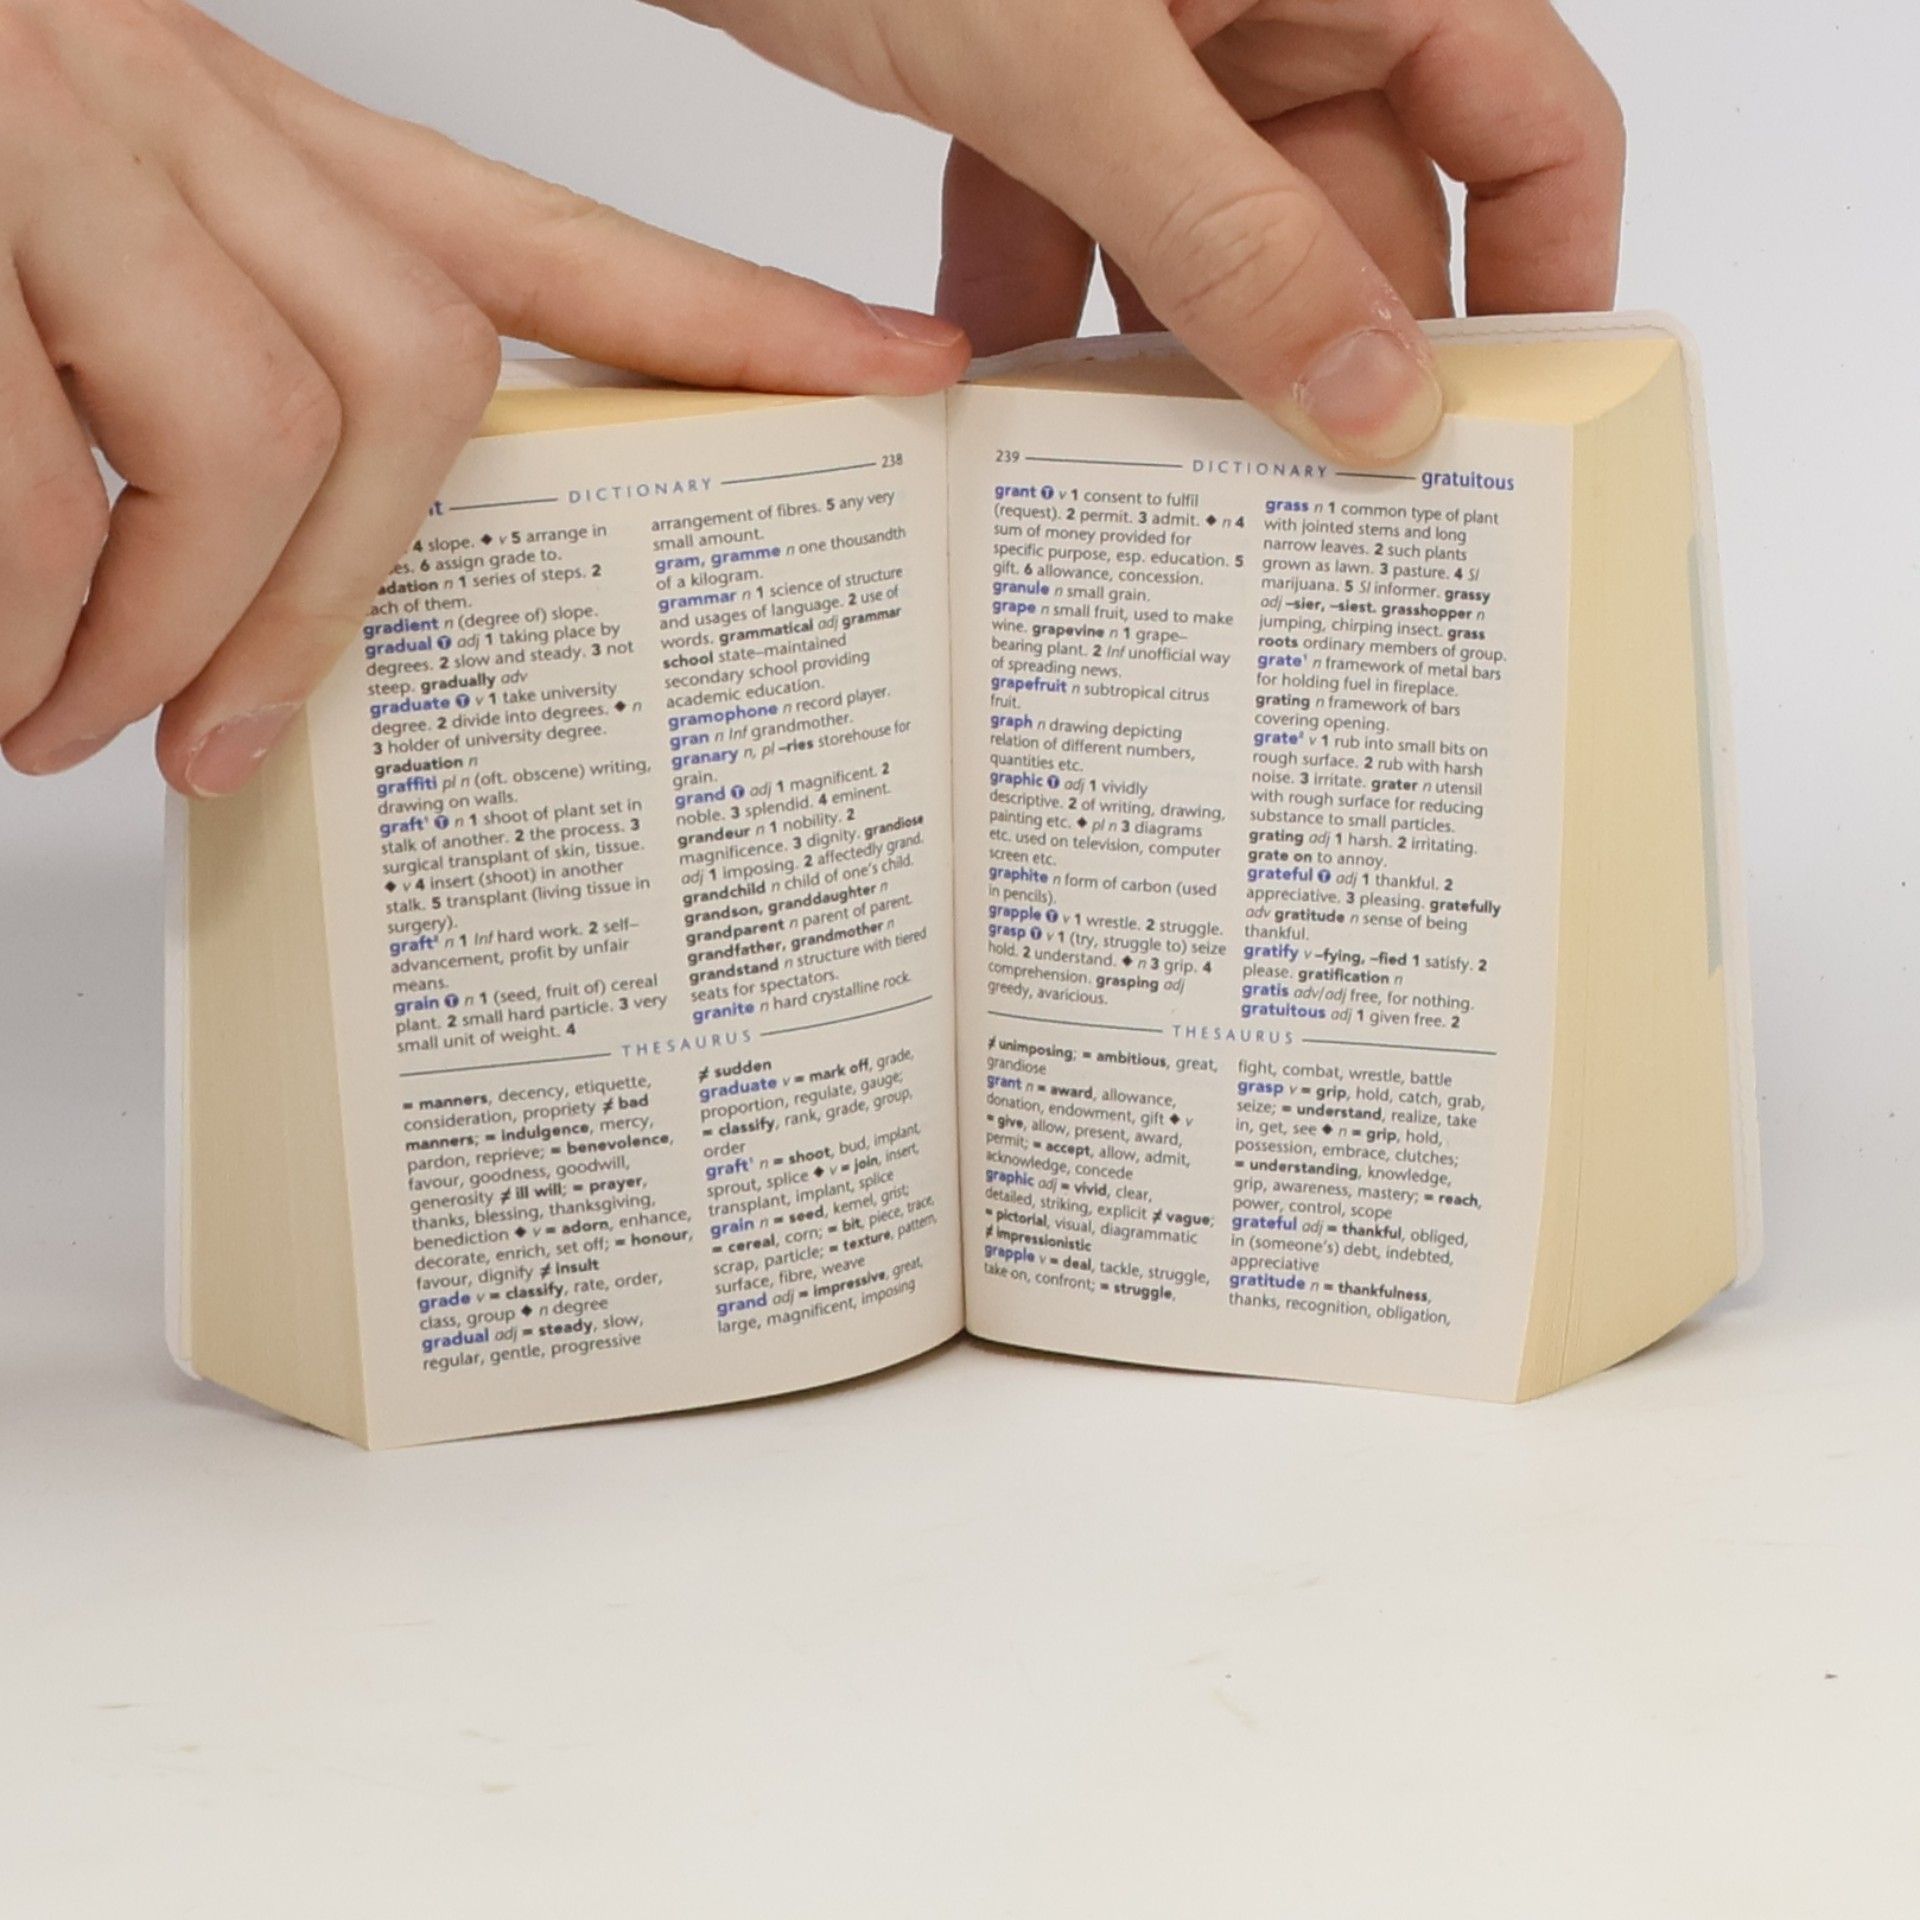 DICTIONARY 238
4 slope. ◆ v 5 arrange in
6 assign grade to.
n 1 series of steps. 2
of them.
gradient n (degree of) slope.
gradual Ⓣ adj 1 taking place by
degrees. 2 slow and steady. 3 not
steep. gradually adv
graduate Ⓣ v 1 take university
degree. 2 divide into degrees. ◆ n
3 holder of university degree.
graduation n
graffiti pl n (oft. obscene) writing,
drawing on walls.
graft¹ Ⓣ n 1 shoot of plant set in
stalk of another. 2 the process. 3
surgical transplant of skin, tissue.
◆ v 4 insert (shoot) in another
stalk. 5 transplant (living tissue in
surgery).
graft² n 1 Inf hard work. 2 self–
advancement, profit by unfair
means.
grain Ⓣ n 1 (seed, fruit of) cereal
plant. 2 small hard particle. 3 very
small unit of weight. 4
arrangement of fibres. 5 any very
small amount.
gram, gramme n one thousandth
of a kilogram.
grammar n 1 science of structure
and usages of language. 2 use of
words. grammatical adj grammar
school state–maintained
secondary school providing
academic education.
gramophone n record player.
gran n Inf grandmother.
granary n, pl –ries storehouse for
grain.
grand Ⓣ adj 1 magnificent. 2
noble. 3 splendid. 4 eminent.
grandeur n 1 nobility. 2
magnificence. 3 dignity. grandiose
adj 1 imposing. 2 affectedly grand.
grandchild n child of one's child.
grandson, granddaughter n
grandparent n parent of parent.
grandfather, grandmother n
grandstand n structure with tiered
seats for spectators.
granite n hard crystalline rock.
THESAURUS
= manners, decency, etiquette,
consideration, propriety ≠ bad
manners; = indulgence, mercy,
pardon, reprieve; = benevolence,
favour, goodness, goodwill,
generosity ≠ ill will; = prayer,
thanks, blessing, thanksgiving,
benediction ◆ v = adorn, enhance,
decorate, enrich, set off; = honour,
favour, dignify ≠ insult
grade v = classify, rate, order,
class, group ◆ n degree
gradual adj = steady, slow,
regular, gentle, progressive
≠ sudden
graduate v = mark off, grade,
proportion, regulate, gauge;
= classify, rank, grade, group,
order
graft¹ n = shoot, bud, implant,
sprout, splice ◆ v = join, insert,
transplant, implant, splice
grain n = seed, kernel, grist;
= cereal, corn; = bit, piece, trace,
scrap, particle; = texture, pattern,
surface, fibre, weave
grand adj = impressive, great,
large, magnificent, imposing
239 DICTIONARY gratuitous
grant Ⓣ v 1 consent to fulfil
(request). 2 permit. 3 admit. ◆ n 4
sum of money provided for
specific purpose, esp. education. 5
gift. 6 allowance, concession.
granule n small grain.
grape n small fruit, used to make
wine. grapevine n 1 grape–
bearing plant. 2 Inf unofficial way
of spreading news.
grapefruit n subtropical citrus
fruit.
graph n drawing depicting
relation of different numbers,
quantities etc.
graphic Ⓣ adj 1 vividly
descriptive. 2 of writing, drawing,
painting etc. ◆ pl n 3 diagrams
etc. used on television, computer
screen etc.
graphite n form of carbon (used
in pencils).
grapple Ⓣ v 1 wrestle. 2 struggle.
grasp Ⓣ v 1 (try, struggle to) seize
hold. 2 understand. ◆ n 3 grip. 4
comprehension. grasping adj
greedy, avaricious.
grass n 1 common type of plant
with jointed stems and long
narrow leaves. 2 such plants
grown as lawn. 3 pasture. 4 Sl
marijuana. 5 Sl informer. grassy
adj –sier, –siest. grasshopper n
jumping, chirping insect. grass
roots ordinary members of group.
grate¹ n framework of metal bars
for holding fuel in fireplace.
grating n framework of bars
covering opening.
grate² v 1 rub into small bits on
rough surface. 2 rub with harsh
noise. 3 irritate. grater n utensil
with rough surface for reducing
substance to small particles.
grating adj 1 harsh. 2 irritating.
grate on to annoy.
grateful Ⓣ adj 1 thankful. 2
appreciative. 3 pleasing. gratefully
adv gratitude n sense of being
thankful.
gratify v –fying, –fied 1 satisfy. 2
please. gratification n
gratis adv/adj free, for nothing.
gratuitous adj 1 given free. 2
THESAURUS
≠ unimposing; = ambitious, great,
grandiose
grant n = award, allowance,
donation, endowment, gift ◆ v
= give, allow, present, award,
permit; = accept, allow, admit,
acknowledge, concede
graphic adj = vivid, clear,
detailed, striking, explicit ≠ vague;
= pictorial, visual, diagrammatic
≠ impressionistic
grapple v = deal, tackle, struggle,
take on, confront; = struggle,
fight, combat, wrestle, battle
grasp v = grip, hold, catch, grab,
seize; = understand, realize, take
in, get, see ◆ n = grip, hold,
possession, embrace, clutches;
= understanding, knowledge,
grip, awareness, mastery; = reach,
power, control, scope
grateful adj = thankful, obliged,
in (someone's) debt, indebted,
appreciative
gratitude n = thankfulness,
thanks, recognition, obligation,